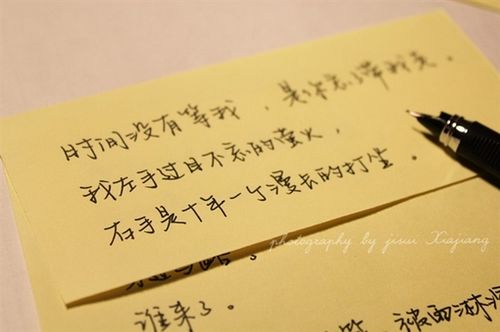 时间没有等我，是你忘了带我走。
我左手过目不忘的萤火，
右手是十年一个漫长的打坐。
photography by jisui Xiajiang
谁来了。
被雨淋